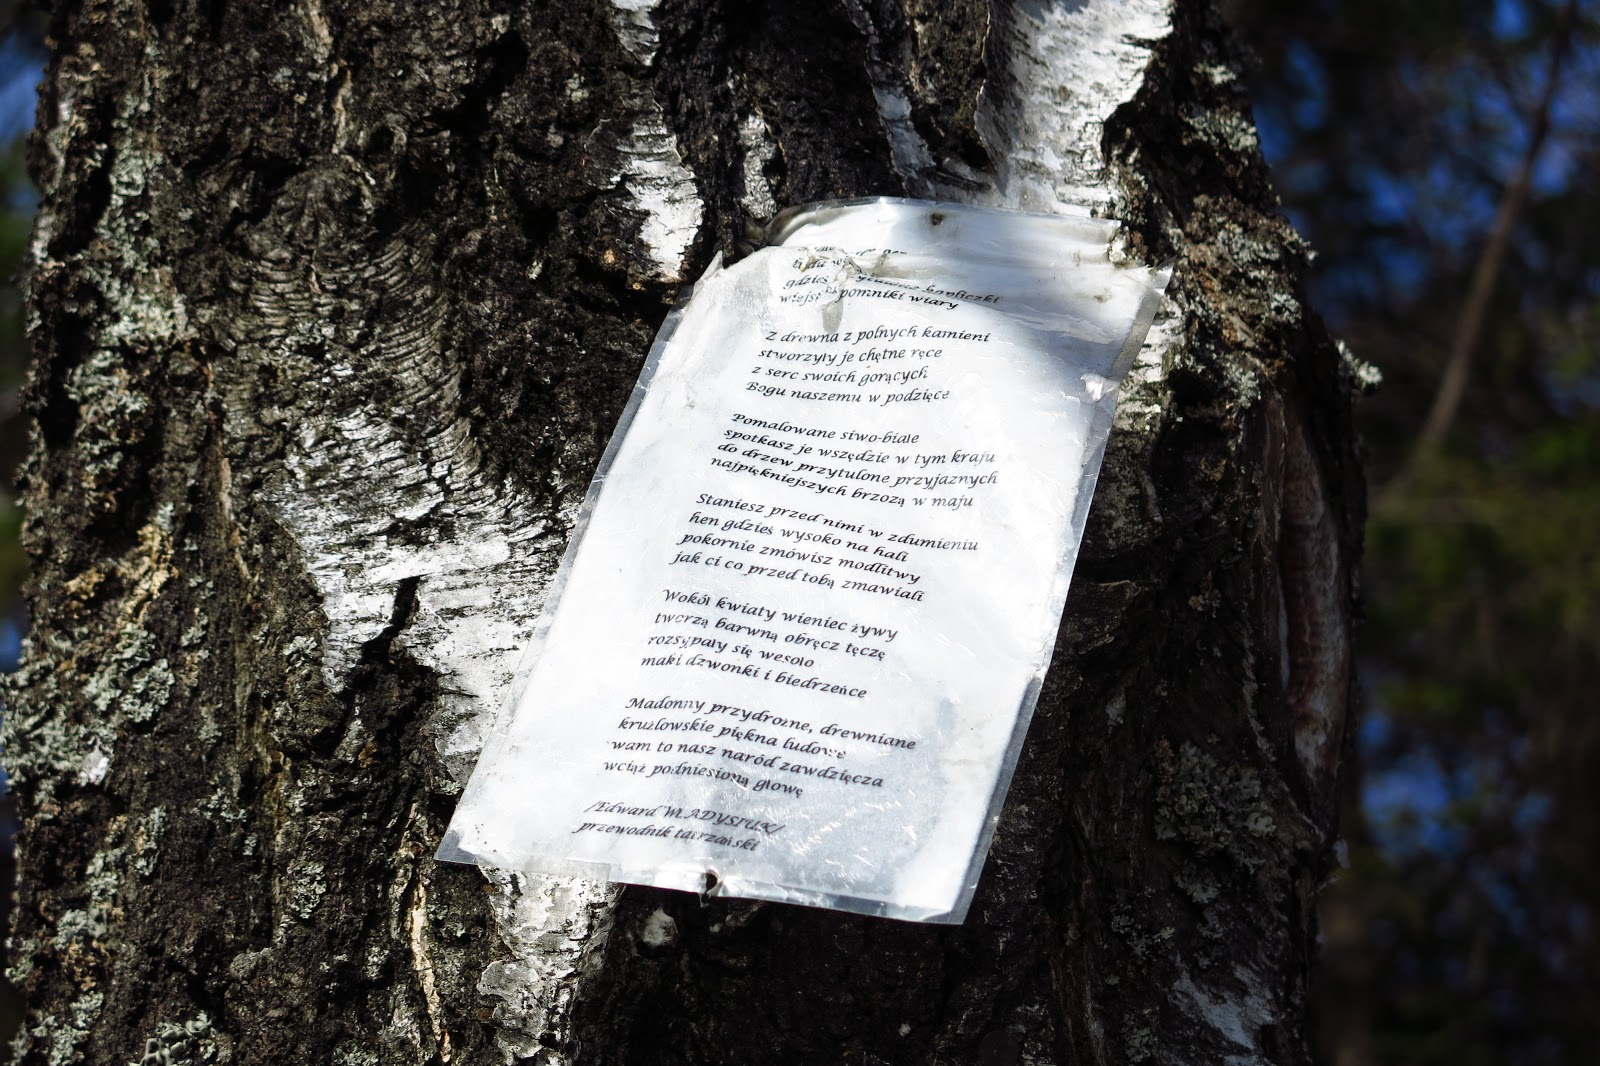 gdzieś kapliczki
pomniki wiary
Z drewna z polnych kamieni
stworzyły je chętne ręce
z serc swoich gorących
Bogu naszemu w podzięce
Pomalowane siwo-białe
spotkasz je wszędzie w tym kraju
do drzew przytulone przyjaznych
najpiękniejszych brzozą w maju
Staniesz przed nimi w zdumieniu
hen gdzieś wysoko na hali
pokornie zmówisz modlitwy
jak ci co przed tobą zmawiali
Wokół kwiaty wieniec żywy
tworzą barwną obręcz tęczę
rozsypały się wesoło
maki dzwonki i biedrzeńce
Madonny przydrożne, drewniane
krużlowskie piękna ludowe
wam to nasz naród zawdzięcza
wciąż podniesioną głowę
/Edward WŁADYSIUK/
przewodnik tatrzański